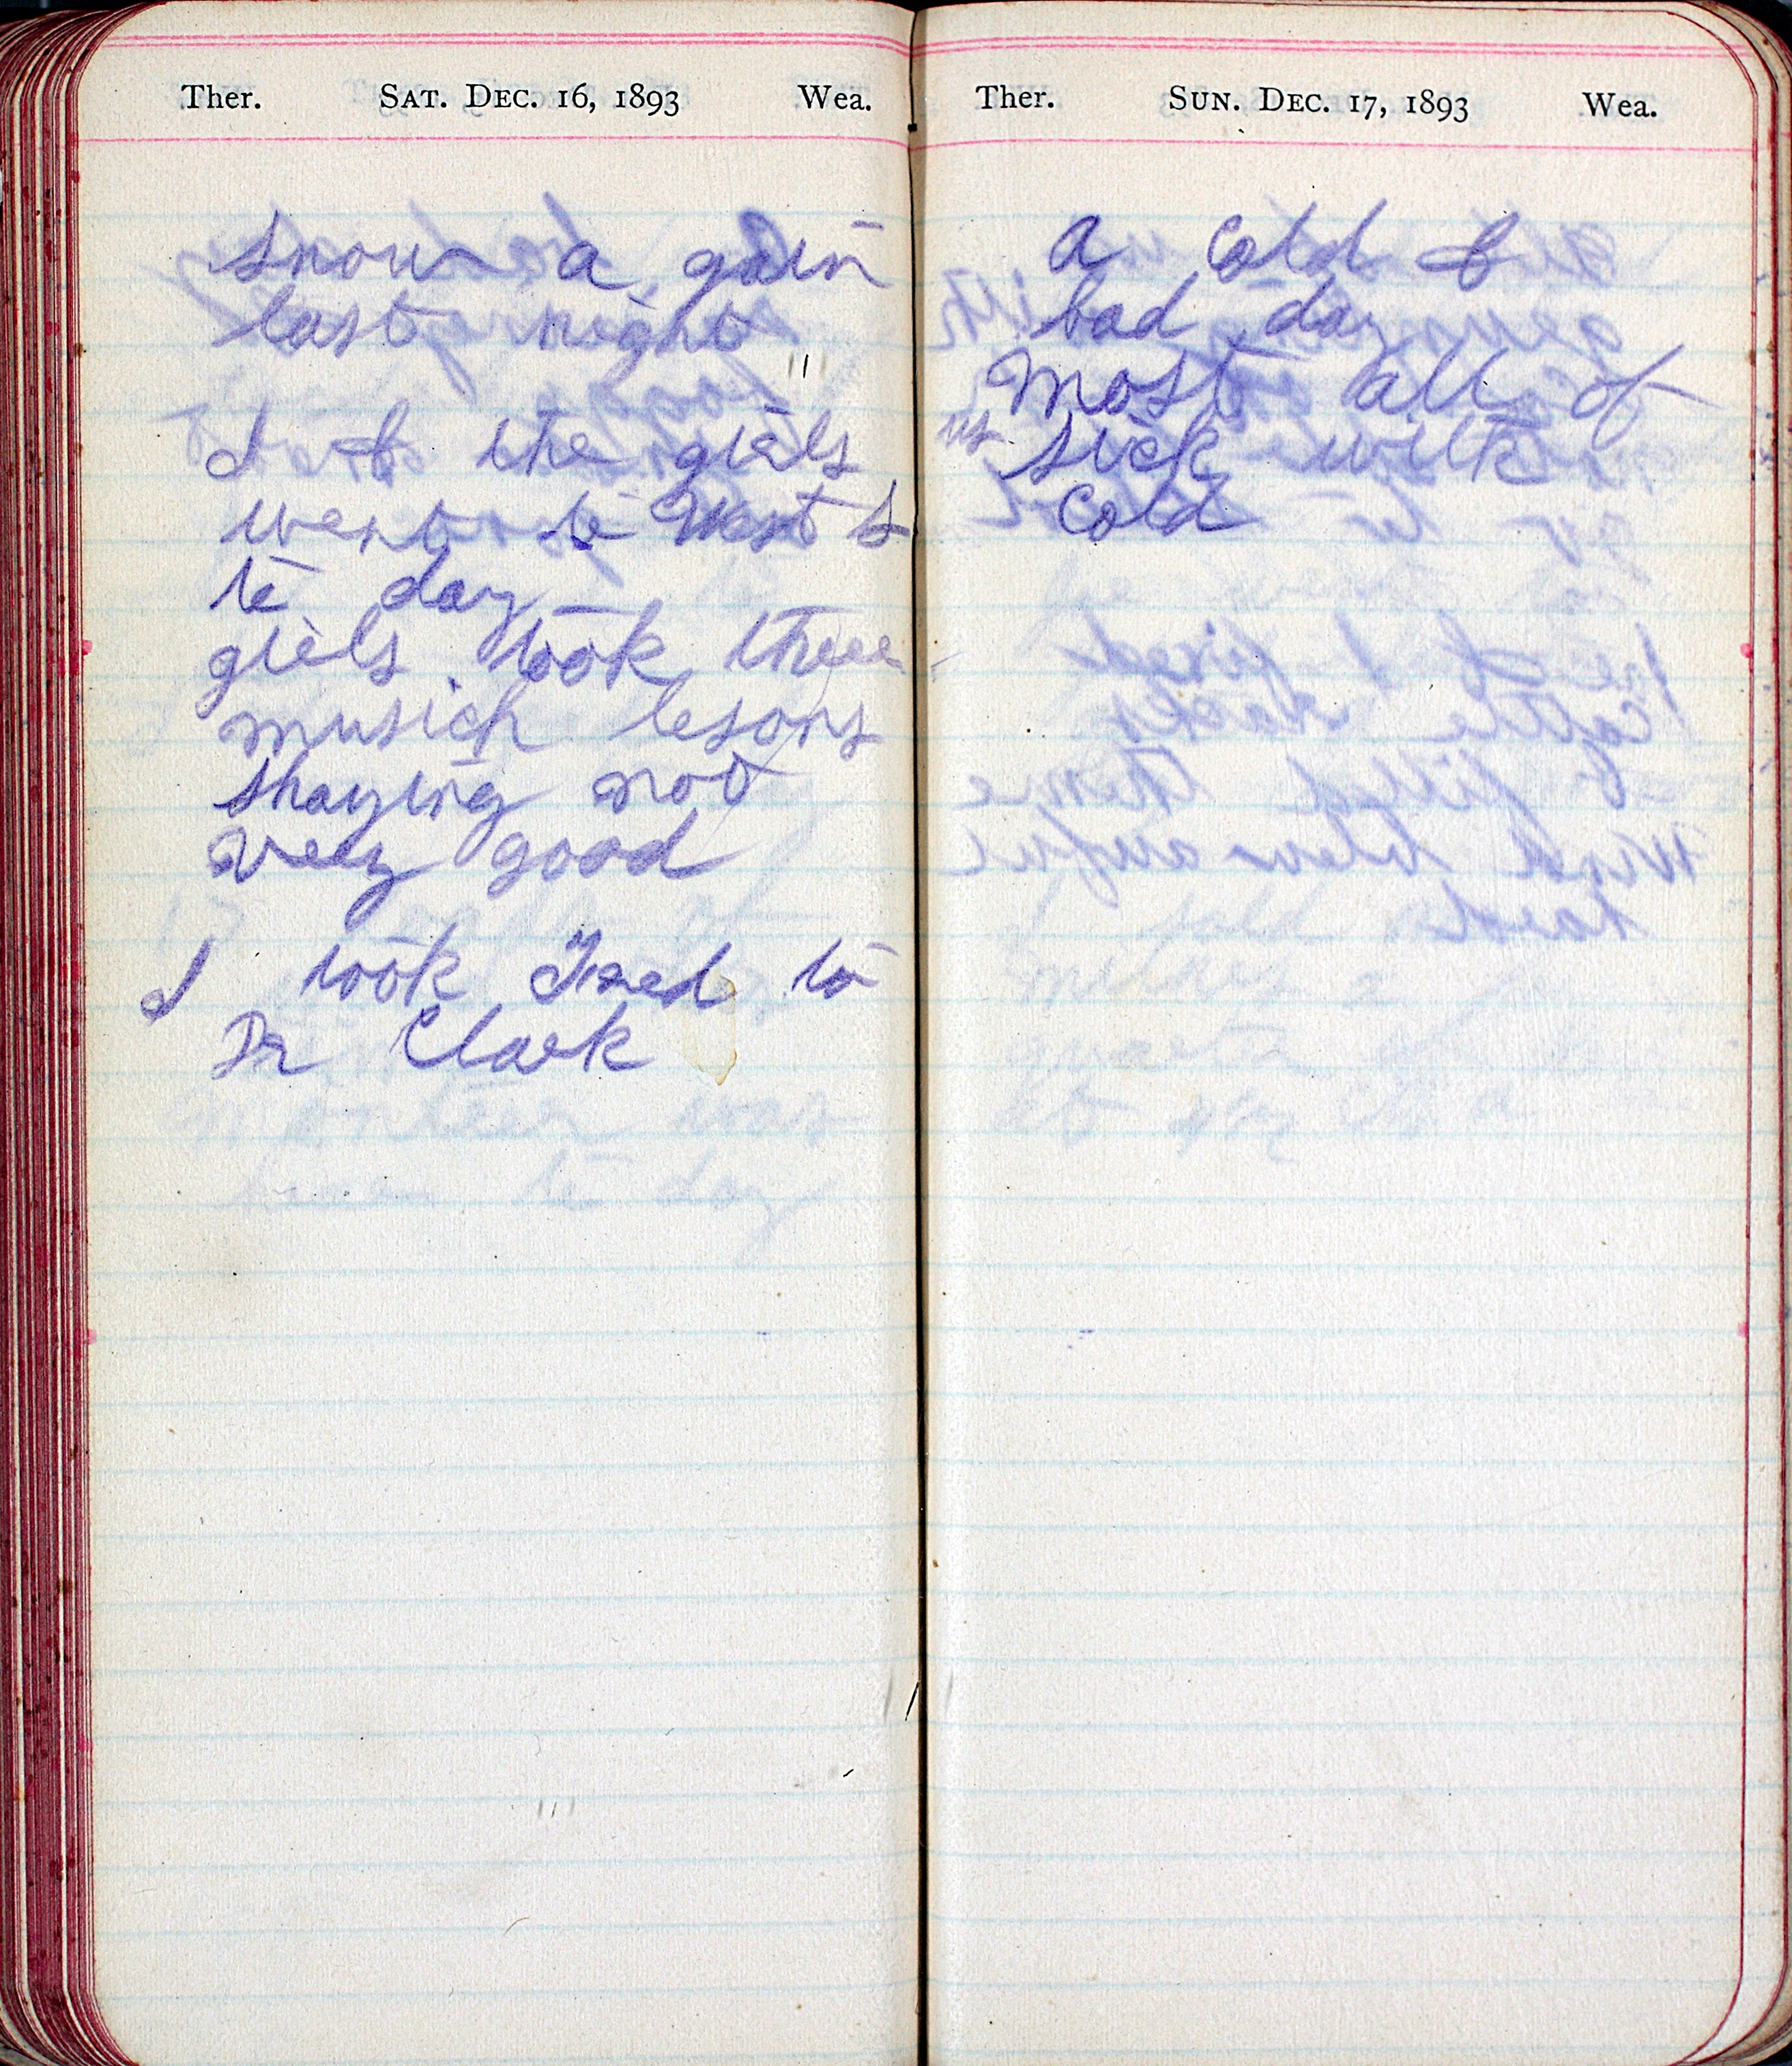 Ther. SAT. DEC. 16, 1893 Wea.
snow a gain
last night
I & the girls
went to West B
to day
girls took there
musick lesons
shaying not
very good
I took Fred to
Dr Clark
Ther. SUN. DEC. 17, 1893 Wea.
a cold &
bad day
most all of
us sick with
cold